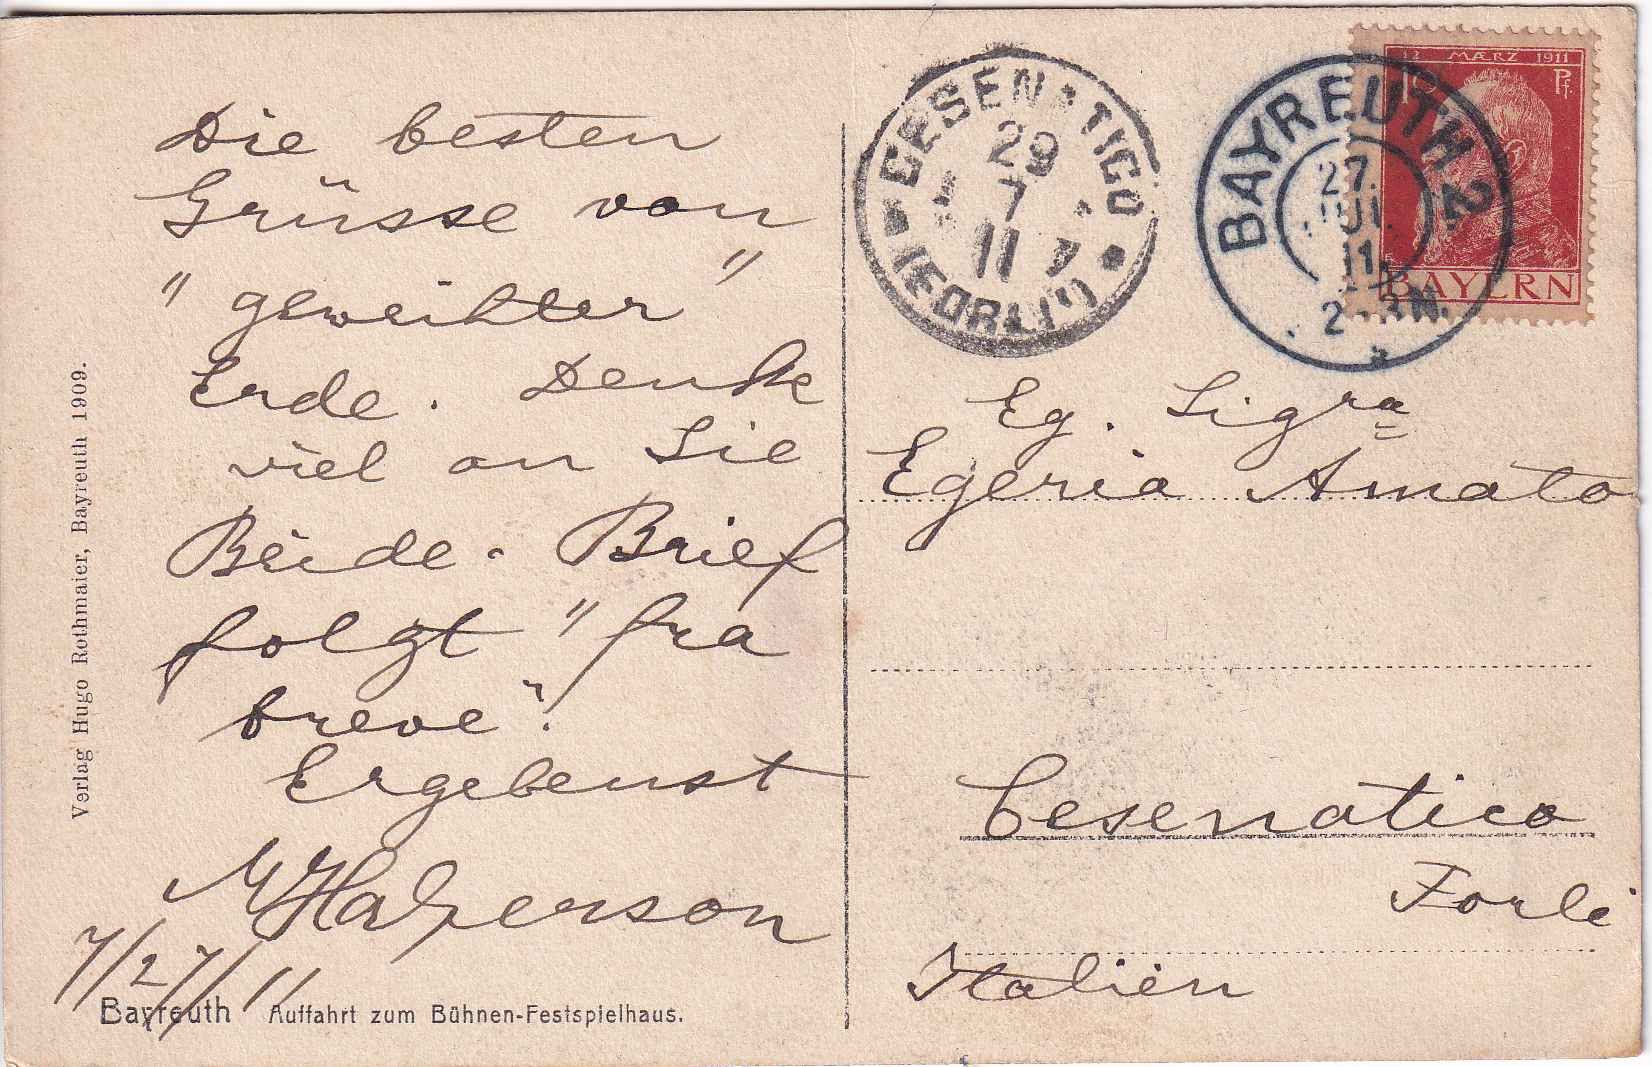 Die besten
Grüsse von
" geweihter "
Erde. Denke
viel an Sie
Beide. Brief
folgt "fra
breve"!
Ergebenst
M Halperson
7/27/11
Verlag Hugo Rothmaier, Bayreuth 1909.
Bayreuth Auffahrt zum Bühnen-Festspielhaus.
CESENATICO
29
7
11
(FORLI)
BAYREUTH 2
27.
JUL
11.
12 MÆRZ 1911
10 Pf.
BAYERN
Eg. Sigra
Egeria Amato
Cesenatico
Forli
Italien